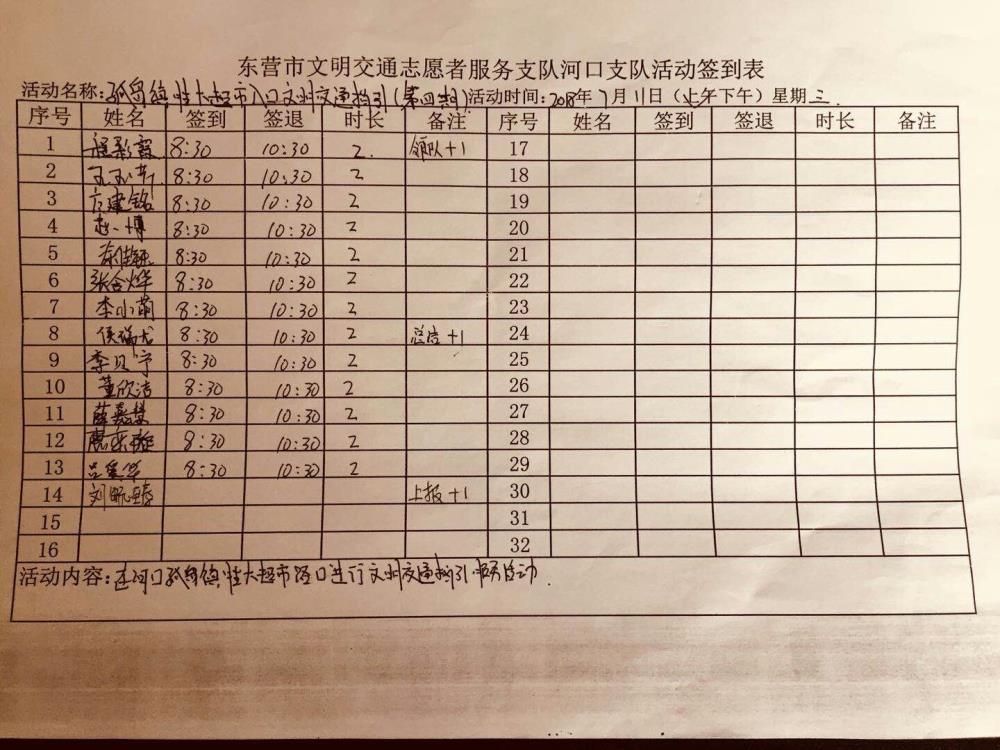 东营市文明交通志愿者服务支队河口支队活动签到表
活动名称:孤岛镇 佳大超市入口文明交通指引(第四期)活动时间:2018年7月11日(上午下午)星期三.
序号 姓名 签到 签退 时长 备注 序号 姓名 签到 签退 时长 备注
1 8:30 10:30 2. 领队+1 17
2 8:30 10:30 2 18
3 建铭 8:30 10:30 2 19
4 赵一博 8:30 10:30 2 20
5 8:30 10:30 2 21
6 张合烨 8:30 10:30 2 22
7 李小萌 8:30 10:30 2 23
8 侯瑞龙 8:30 10:30 2 总结+1 24
9 李贝宁 8:30 10:30 2 25
10 董欣洁 8:30 10:30 2 26
11 薛嘉 8:30 10:30 2 27
12 8:30 10:30 2 28
13 吕 华 8:30 10:30 2 29
14 刘 上报+1 30
15 31
16 32
活动内容:在河口孤岛镇 佳大超市路口进行文明交通指引 服务活动.